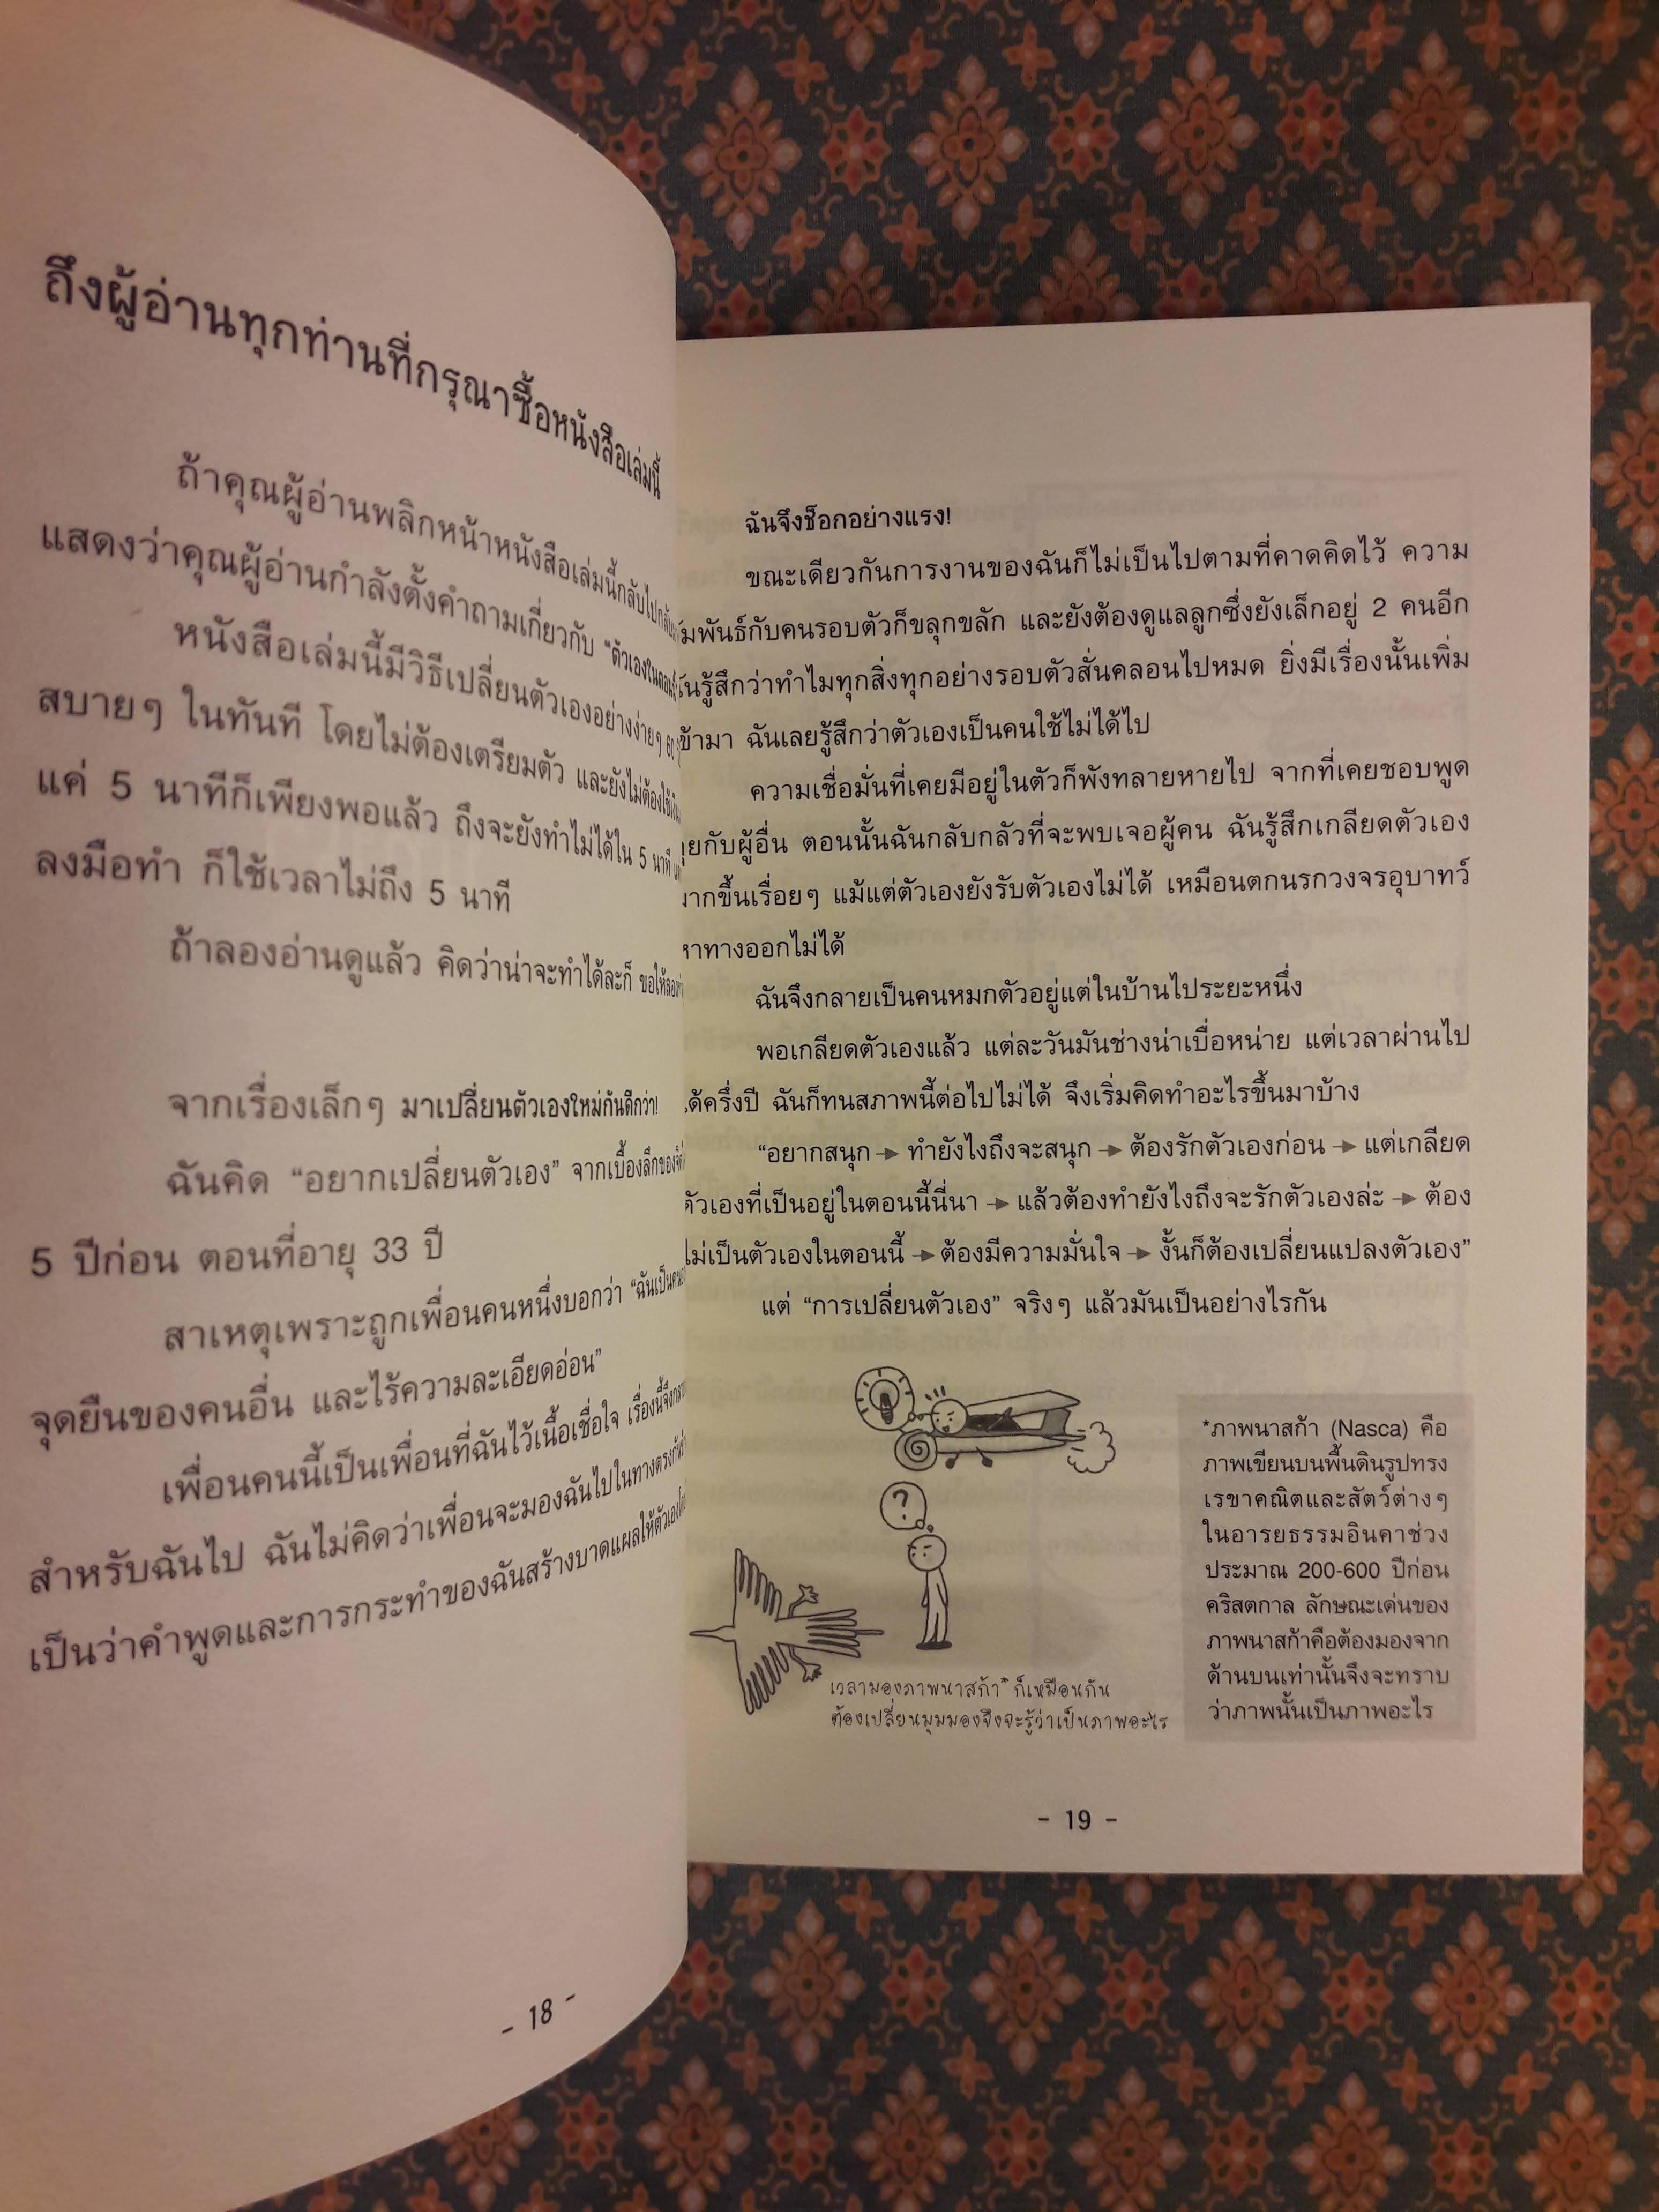 ถึงผู้อ่านทุกท่านที่กรุณาซื้อหนังสือเล่มนี้
ถ้าคุณผู้อ่านพลิกหน้าหนังสือเล่มนี้กลับไป
แสดงว่าคุณผู้อ่านกำลังตั้งคำถามเกี่ยวกับ “ตัวเองใน
หนังสือเล่มนี้มีวิธีเปลี่ยนตัวเองอย่างง่ายๆ 60
สบายๆ ในทันที โดยไม่ต้องเตรียมตัว และยังไม่ต้องใช้
แค่ 5 นาทีก็เพียงพอแล้ว ถึงจะยังทำไม่ได้ใน 5 นาที
ลงมือทำ ก็ใช้เวลาไม่ถึง 5 นาที
ถ้าลองอ่านดูแล้ว คิดว่าน่าจะทำได้ละก็ ขอให้ลอง
จากเรื่องเล็กๆ มาเปลี่ยนตัวเองใหม่กันดีกว่า!
ฉันคิด “อยากเปลี่ยนตัวเอง” จากเบื้องลึกของ
5 ปีก่อน ตอนที่อายุ 33 ปี
สาเหตุเพราะถูกเพื่อนคนหนึ่งบอกว่า “ฉันเป็นคน
จุดยืนของคนอื่น และไร้ความละเอียดอ่อน”
เพื่อนคนนี้เป็นเพื่อนที่ฉันไว้เนื้อเชื่อใจ เรื่องนี้จึง
สำหรับฉันไป ฉันไม่คิดว่าเพื่อนจะมองฉันไปในทางตรงกัน
เป็นว่าคำพูดและการกระทำของฉันสร้างบาดแผลให้ตัวเอง
- 18 -
ฉันจึงช็อกอย่างแรง!
ขณะเดียวกันการงานของฉันก็ไม่เป็นไปตามที่คาดคิดไว้ ความ
มพันธ์กับคนรอบตัวก็ขลุกขลัก และยังต้องดูแลลูกซึ่งยังเล็กอยู่ 2 คนอีก
นรู้สึกว่าทำไมทุกสิ่งทุกอย่างรอบตัวสั่นคลอนไปหมด ยิ่งมีเรื่องนั้นเพิ่ม
ข้ามา ฉันเลยรู้สึกว่าตัวเองเป็นคนใช้ไม่ได้ไป
ความเชื่อมั่นที่เคยมีอยู่ในตัวก็พังทลายหายไป จากที่เคยชอบพูด
ุยกับผู้อื่น ตอนนั้นฉันกลับกลัวที่จะพบเจอผู้คน ฉันรู้สึกเกลียดตัวเอง
มากขึ้นเรื่อยๆ แม้แต่ตัวเองยังรับตัวเองไม่ได้ เหมือนตกนรกวงจรอุบาทว์
หาทางออกไม่ได้
ฉันจึงกลายเป็นคนหมกตัวอยู่แต่ในบ้านไประยะหนึ่ง
พอเกลียดตัวเองแล้ว แต่ละวันมันช่างน่าเบื่อหน่าย แต่เวลาผ่านไป
ได้ครึ่งปี ฉันก็ทนสภาพนี้ต่อไปไม่ได้ จึงเริ่มคิดทำอะไรขึ้นมาบ้าง
“อยากสนุก → ทำยังไงถึงจะสนุก → ต้องรักตัวเองก่อน → แต่เกลียด
ตัวเองที่เป็นอยู่ในตอนนี้นี่นา → แล้วต้องทำยังไงถึงจะรักตัวเองล่ะ → ต้อง
ไม่เป็นตัวเองในตอนนี้ → ต้องมีความมั่นใจ → งั้นก็ต้องเปลี่ยนแปลงตัวเอง”
แต่ “การเปลี่ยนตัวเอง” จริงๆ แล้วมันเป็นอย่างไรกัน
?
เวลามองภาพนาสก้า* ก็เหมือนกัน
ต้องเปลี่ยนมุมมองจึงจะรู้ว่าเป็นภาพอะไร
*ภาพนาสก้า (Nasca) คือ
ภาพเขียนบนพื้นดินรูปทรง
เรขาคณิตและสัตว์ต่างๆ
ในอารยธรรมอินคาช่วง
ประมาณ 200-600 ปีก่อน
คริสตกาล ลักษณะเด่นของ
ภาพนาสก้าคือต้องมองจาก
ด้านบนเท่านั้นจึงจะทราบ
ว่าภาพนั้นเป็นภาพอะไร
- 19 -